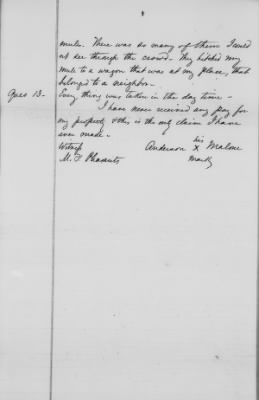 mule. There was so many of them I could
not see through the crowd. They hitched my
mule to a wagon that was at my place, that
belonged to a neighbor.
Ques 13. Every thing was taken in the day time -
I have never received any pay for
my property & this is the only claim I have
ever made.
his
Witness Anderson X Malone
M. F. mark